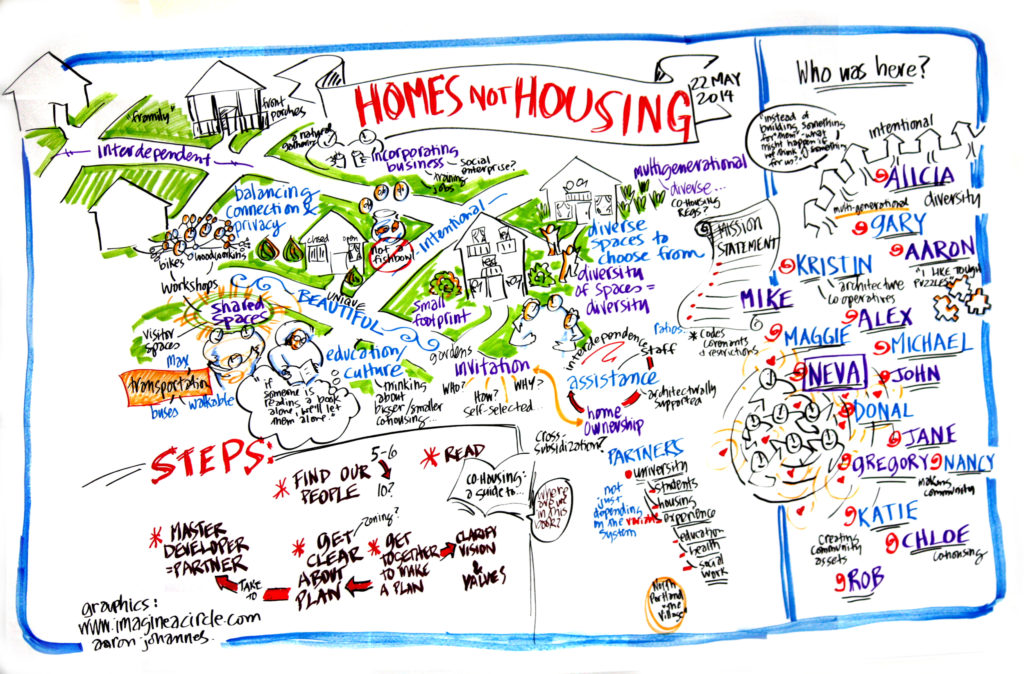 HOMES NOT HOUSING
22 MAY
2014
"framily"
front
porches
interdependent
a natural
gathering
incorporating
business
social
enterprise?
training
jobs
multigenerational
diverse...
co-housing
REGS?
balancing
connection &
privacy
intentional
closed
open
not a
fishbowl
diverse
spaces to
choose from
diversity
of spaces =
diversity
bikes
woodworking
workshops
shared
spaces
BEAUTIFUL
UNIQUE
small
footprint
visitor
spaces
max
transportation
buses
walkable
education/
culture
gardens
"if
someone's
reading a book
alone, we'll let
them alone."
thinking
about
bigger/smaller
cohousing...
invitation
WHO?
WHY?
HOW?
self-selected...
interdependence
staff
assistance
architecturally
supported
home
ownership
ratios...
MISSION
STATEMENT
* codes
covenants
& restrictions
cross-
subsidization?
PARTNERS
university
students
housing
experience
education
health
social
work
not
just
depending
on the various
system
North
Portland
the
Village
STEPS:
* FIND OUR
PEOPLE
5-6
10?
* READ
CO-HOUSING:
a guide to...
where
are we
in this
book?
* MASTER
DEVELOPER
=PARTNER
TAKE
TO
zoning?
* GET
CLEAR
ABOUT
PLAN
* GET
TOGETHER
TO MAKE
A PLAN
CLARIFY
VISION
&
VALUES
graphics:
www.imagineacircle.com
aaron johannes
Who was here?
"instead of
building something
for "them" - what
might happen if
we think of something
for us?"
intentional
ALICIA
diversity
multi-generational
GARY
AARON
"I LIKE TOUGH
PUZZLES"
KRISTIN
architecture
cooperatives
MIKE
ALEX
MAGGIE
MICHAEL
NEVA
JOHN
DONAL
JANE
GREGORY
NANCY
making
community
KATIE
creating
community
assets
CHLOE
cohousing
ROB